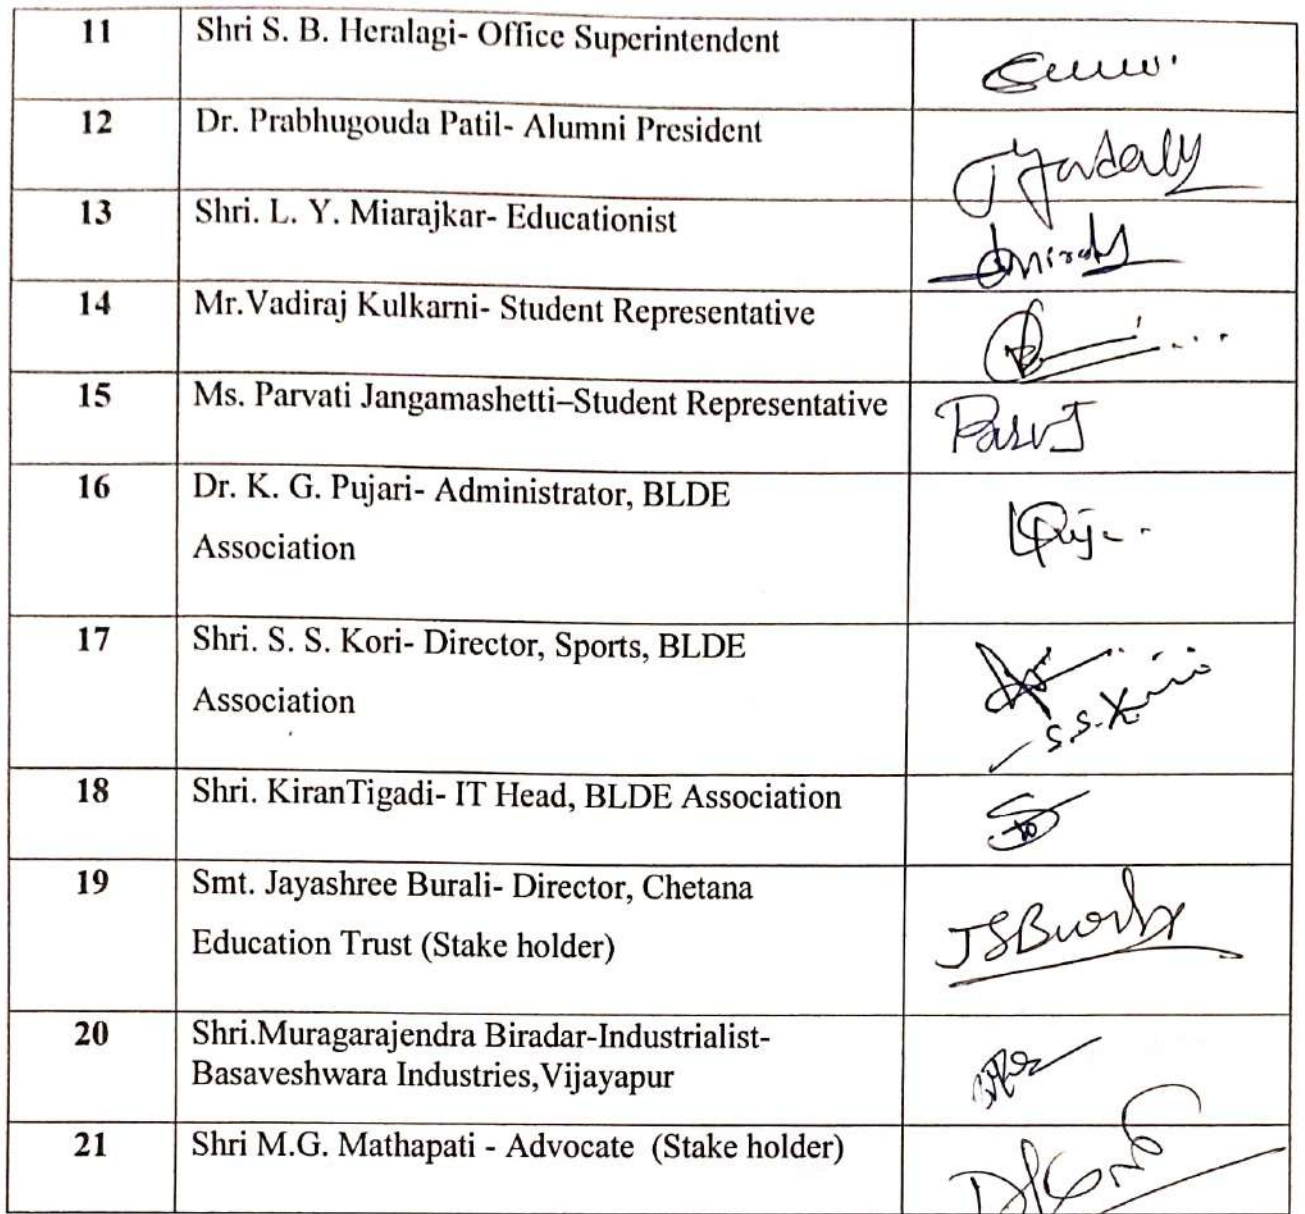 11 Shri S. B. Heralagi- Office Superintendent
12 Dr. Prabhugouda Patil- Alumni President
13 Shri. L. Y. Miarajkar- Educationist
14 Mr.Vadiraj Kulkarni- Student Representative
15 Ms. Parvati Jangamashetti–Student Representative
16 Dr. K. G. Pujari- Administrator, BLDE
Association
17 Shri. S. S. Kori- Director, Sports, BLDE
Association
18 Shri. KiranTigadi- IT Head, BLDE Association
19 Smt. Jayashree Burali- Director, Chetana
Education Trust (Stake holder)
20 Shri.Muragarajendra Biradar-Industrialist-
Basaveshwara Industries,Vijayapur
21 Shri M.G. Mathapati - Advocate (Stake holder)